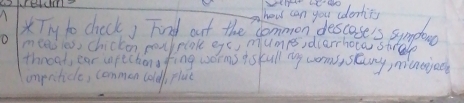 how can you identify
* Try to check, Find out the common deseases symptoms
measles, chicken pox, pink eye, mumps, diarrhoea, strep
throat, ear infection, ring worms, skull ring worms, scurvy,
impriticle, common cold, flue